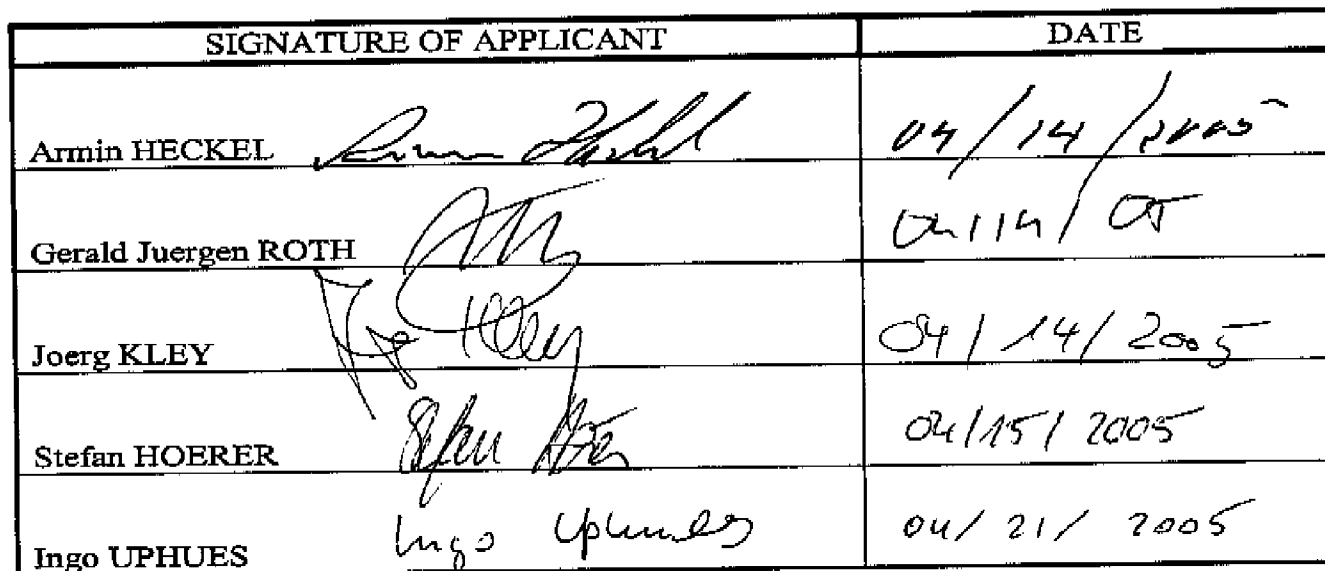 SIGNATURE OF APPLICANT DATE
Armin HECKEL Armin Heckel 04/14/2005
Gerald Juergen ROTH 04/14/05
Joerg KLEY Kley 04/14/2005
Stefan HOERER Stefan Hörer 04/15/2005
Ingo UPHUES Ingo Uphues 04/21/2005